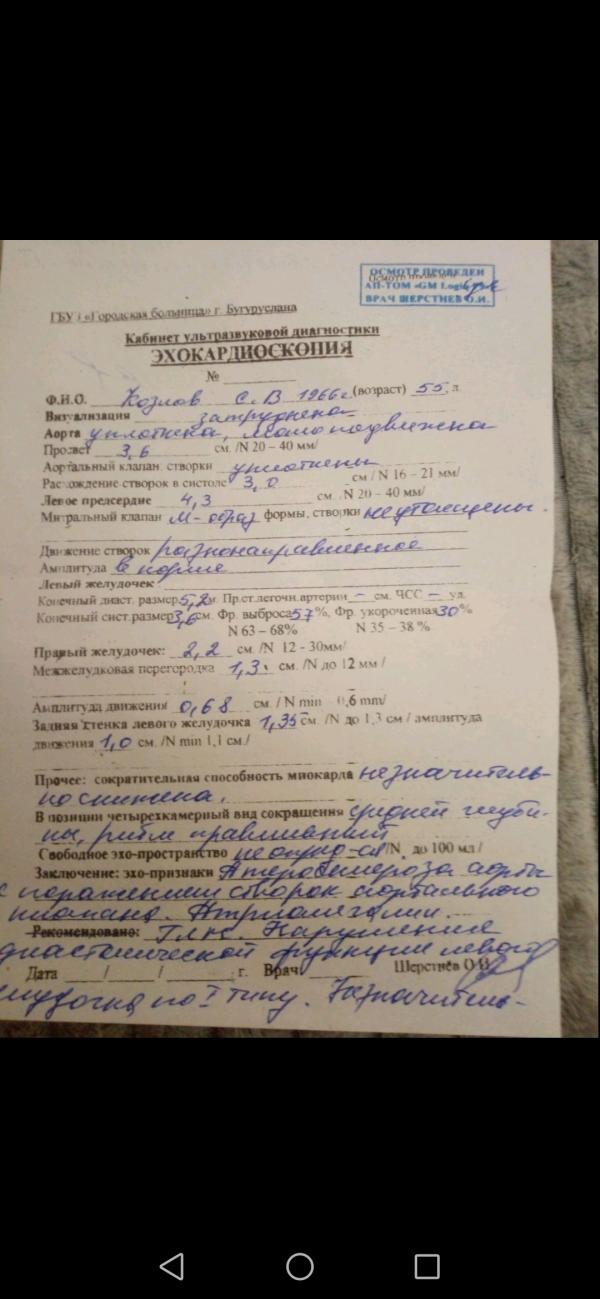 ОСМОТР ПРОВЕДЕН
АП-ТОМ «GM Logiq
ВРАЧ ШЕРСТНЕВ О.И.
ГБУЗ «Городская больница» г. Бугуруслана
Кабинет ультразвуковой диагностики
ЭХОКАРДИОСКОПИЯ
№
Ф.И.О. Козлов С.В 1966г (возраст) 55 л.
Визуализация затруднена
Аорта уплотнена, мало подвижна
Просвет 3,6 см. /N 20 – 40 мм/
Аортальный клапан: створки уплотнены
Расхождение створок в систоле 3,0 см / N 16 – 21 мм/
Левое предсердие 4,3 см . N 20 – 40 мм/
Митральный клапан М-образ формы, створки не утолщены.
Движение створок разнонаправленное
Амплитуда в норме
Левый желудочек
Конечный диаст. размер 5,2 м. Пр.ст.легочн.артерии – см. ЧСС – уд.
Конечный сист.размер 3,6 см. Фр. выброса 57 %, Фр. укорочения 30 %
N 63 – 68% N 35 – 38 %
Правый желудочек: 2,2 см. /N 12 - 30мм/
Межжелудковая перегородка 1,3 см. /N до 12 мм /
Амплитуда движения 0,68 см. / N min 0,6 mm/
Задняя стенка левого желудочка 1,35 см. /N до 1,3 см / амплитуда
движения 1,0 см. /N min 1,1 см./
Прочее: сократительная способность миокарда незначитель-
но снижена.
В позиции четырехкамерный вид сокращения средней глуби-
ны, ритм правильный
Свободное эхо-пространство не опред-ся /N до 100 мл /
Заключение: эхо-признаки Атеросклероза аорты
с поражением створок аортального
клапана. Атриомегалии.
Рекомендовано: Глж. Нарушение
диастолической функции левого
Дата / / г. Врач Шерстнёв О.И.
желудочка по I типу. Незначитель-